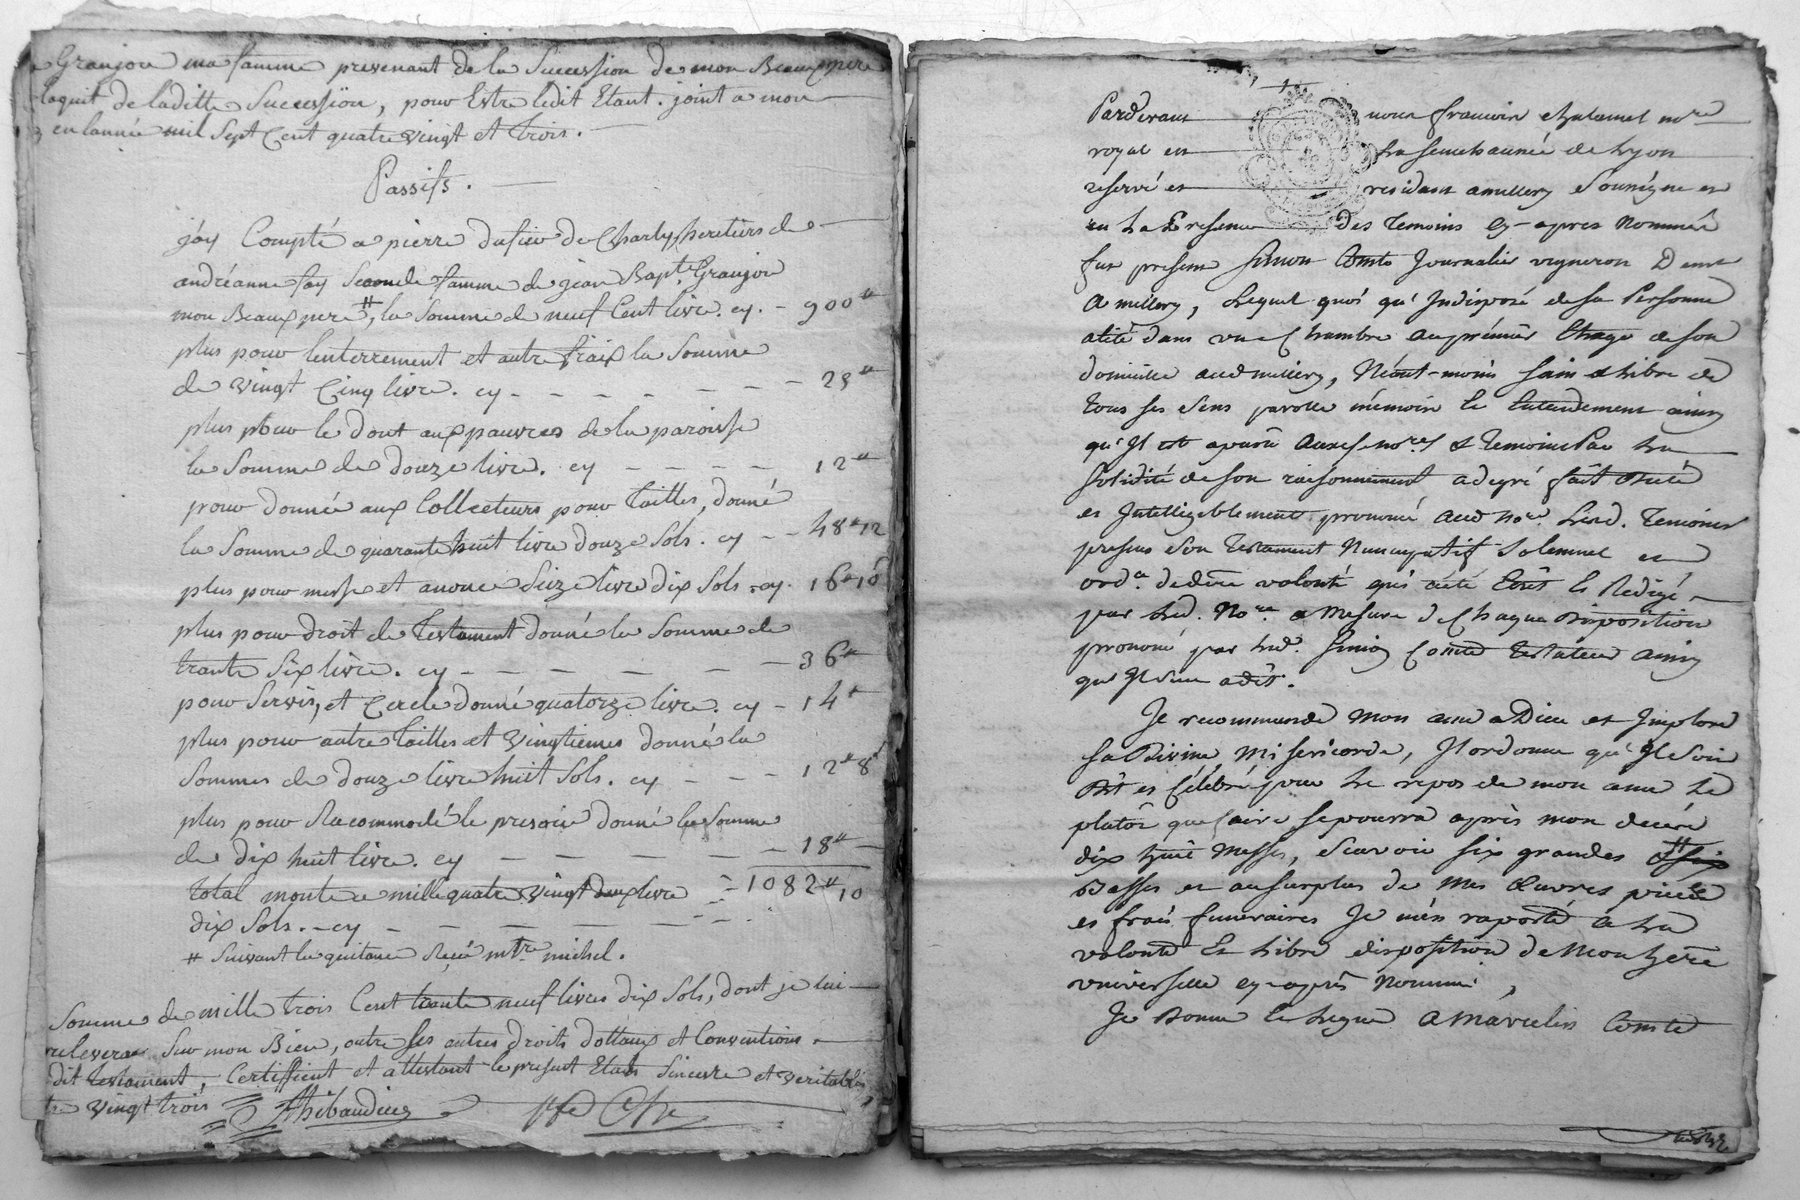 Granjon ma famme provenant de la Succession de mon Beauxpere
laquit de laditte Succession, pour Estre ledit Etant. joint a mon
en lannée mil Sept Cent quatre vingt et trois.
Passifs.
j'ay Compté a pierre dufieu de Charly heretiers de
andréanne fay Seconde famme de jean Bapt. Granjon
mon Beauxpere #, la Somme de neuf Cent livre. cy. - 900#
plus pour lenterrement et autre fraix la Somme
de vingt Cinq livre. cy - - - - - - 25#
plus pour le dont aux pauvres de la paroisse
la Somme de douze livre. cy - - - - 12#
pour donnée aux Collecteurs pour tailles, donné
la Somme de quarante huit livre douze Sols. cy - - 48# 12
plus pour messe et anonce Seize livre dix Sols. cy. 16# 10
plus pour droit de Testament donné la Somme de
trante Six livre. cy - - - - - 36#
pour Servis, et Cercle donné quatorze livre. cy - 14#
plus pour autre tailles et vingtiemes donné la
Sommes de douze livre huit Sols. cy - - - 12# 8
plus pour Racommodé le presoir donné la Somme
de dix huit livre. cy - - - - - 18#
total monte a mille quatre vingt deux livre - 1082# 10
dix Sols. - cy - - - - -
# Suivant la quitance Reçu mtre michel.
Somme de mille trois Cent trante neuf livres dix Sols, dont je lui
relevera Sur mon Bien, outre Ses autres droits dottaux et Conventions.
dit testament, Certiffient et attestant le present Etats Sincere et veritable
vingt trois Thibaudier
Pardevant nous francoin chatanel nore
royal en La senechaunée de Lyon
reservé et residant amillery Sousigne et
en La Presence des Temoins Cy-apres Nommés
fut present Simon Comte Journalier vigneron Demt
a millery, Lequel quoi qu'Indisposé de sa Personne
alité dans une Chambre au prémier Etage de son
domicille aud millery, Néant-moins sain & Libre de
tous ses Sens parolle mémoire Et Entendement ainsy
qu'Il est aparu auxs. nores & Temoins Par La
Solidité de son raisonnement a degré fait dicté
et Intelligiblement prononcé aud nore. Lesd. Temoins
presens Son Testament Nuncupatif Solemnel et
ord.e derniere volonté qui a été Ecrit & Redigé
par Led. Nore a Mesure de Chaque Disposition
prononcé par Led. Simon Comte testateur ainsy
qu'Il suit a dit.
Je recommande Mon ame a Dieu et Implore
sa Divine Misericorde, J'ordonne qu'Il soit
Dit et Célébré pour Le repos de mon ame Le
platôt que faire se pourra après mon decéré
dix huit Messes, Scavoir six grandes
Basses et au surplus de Mes Œuvres pieuses
et frais funeraires Je m'en raporte a La
volonté Et Libre disposition de Mon hére
universelle cy-après Nommé,
Je Donne Et Legue a Marcelin Comte